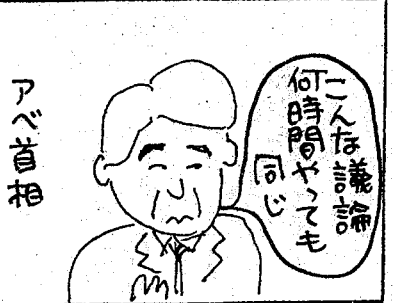 こんな議論
何時間やっても
同じ
アベ首相